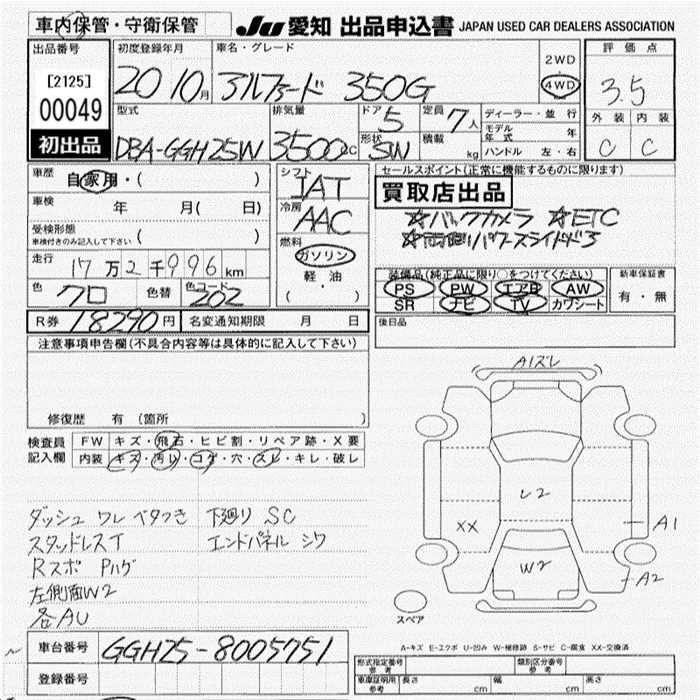 車内保管・守衛保管
JU 愛知 出品申込書 JAPAN USED CAR DEALERS ASSOCIATION
出品番号
[2125]
00049
初出品
初度登録年月
20 10月
車名・グレード
アルファード 350G
2WD
4WD
評価点
3.5
型式
DBA-GGH25W
排気量
3500cc
ドア 5
形状 SW
定員 7人
積載 kg
ディーラー・並行
モデル年式 年
ハンドル 左・右
外装 内装
C C
車歴 自家用・( )
車検 年 月( 日)
受検形態
車検付きのみ記入して下さい ( )
走行 17万2千996km
色 クロ 色替 色コード 202
シフト IAT
冷房 AAC
燃料
ガソリン
軽・油
( ・ )
セールスポイント(正常に機能するものに限ります)
買取店出品
☆バックカメラ ☆ETC
☆両側パワースライドドア
装備品(純正品に限り○をつけてください)
PS PW エアB AW
SR ナビ TV カワシート
新車保証書
有・無
R券 18290円 名変通知期限 月 日
後日品
注意事項申告欄(不具合内容等は具体的に記入して下さい)
修復歴 有 (箇所 )
検査員
記入欄
FW キズ・飛石・ヒビ割・リペア跡・X要
内装 キズ・汚レ・コゲ・穴・スレ・キレ・破レ
A1ズレ
レ2
XX
A1
W2
A2
スペア
ダッシュ ワレ ベタつき 下廻り SC
スタッドレスT エンドパネル シワ
Rスポ Pハゲ
左側面W2
各AU
車台番号 GGH25-8005751
登録番号
A-キズ E-エクボ U-凹み W-補修跡 S-サビ C-腐食 XX-交換済
形式指定番号 参考
類別区分番号 参考
車庫証明用 参考 長さ cm 幅 cm 高さ cm